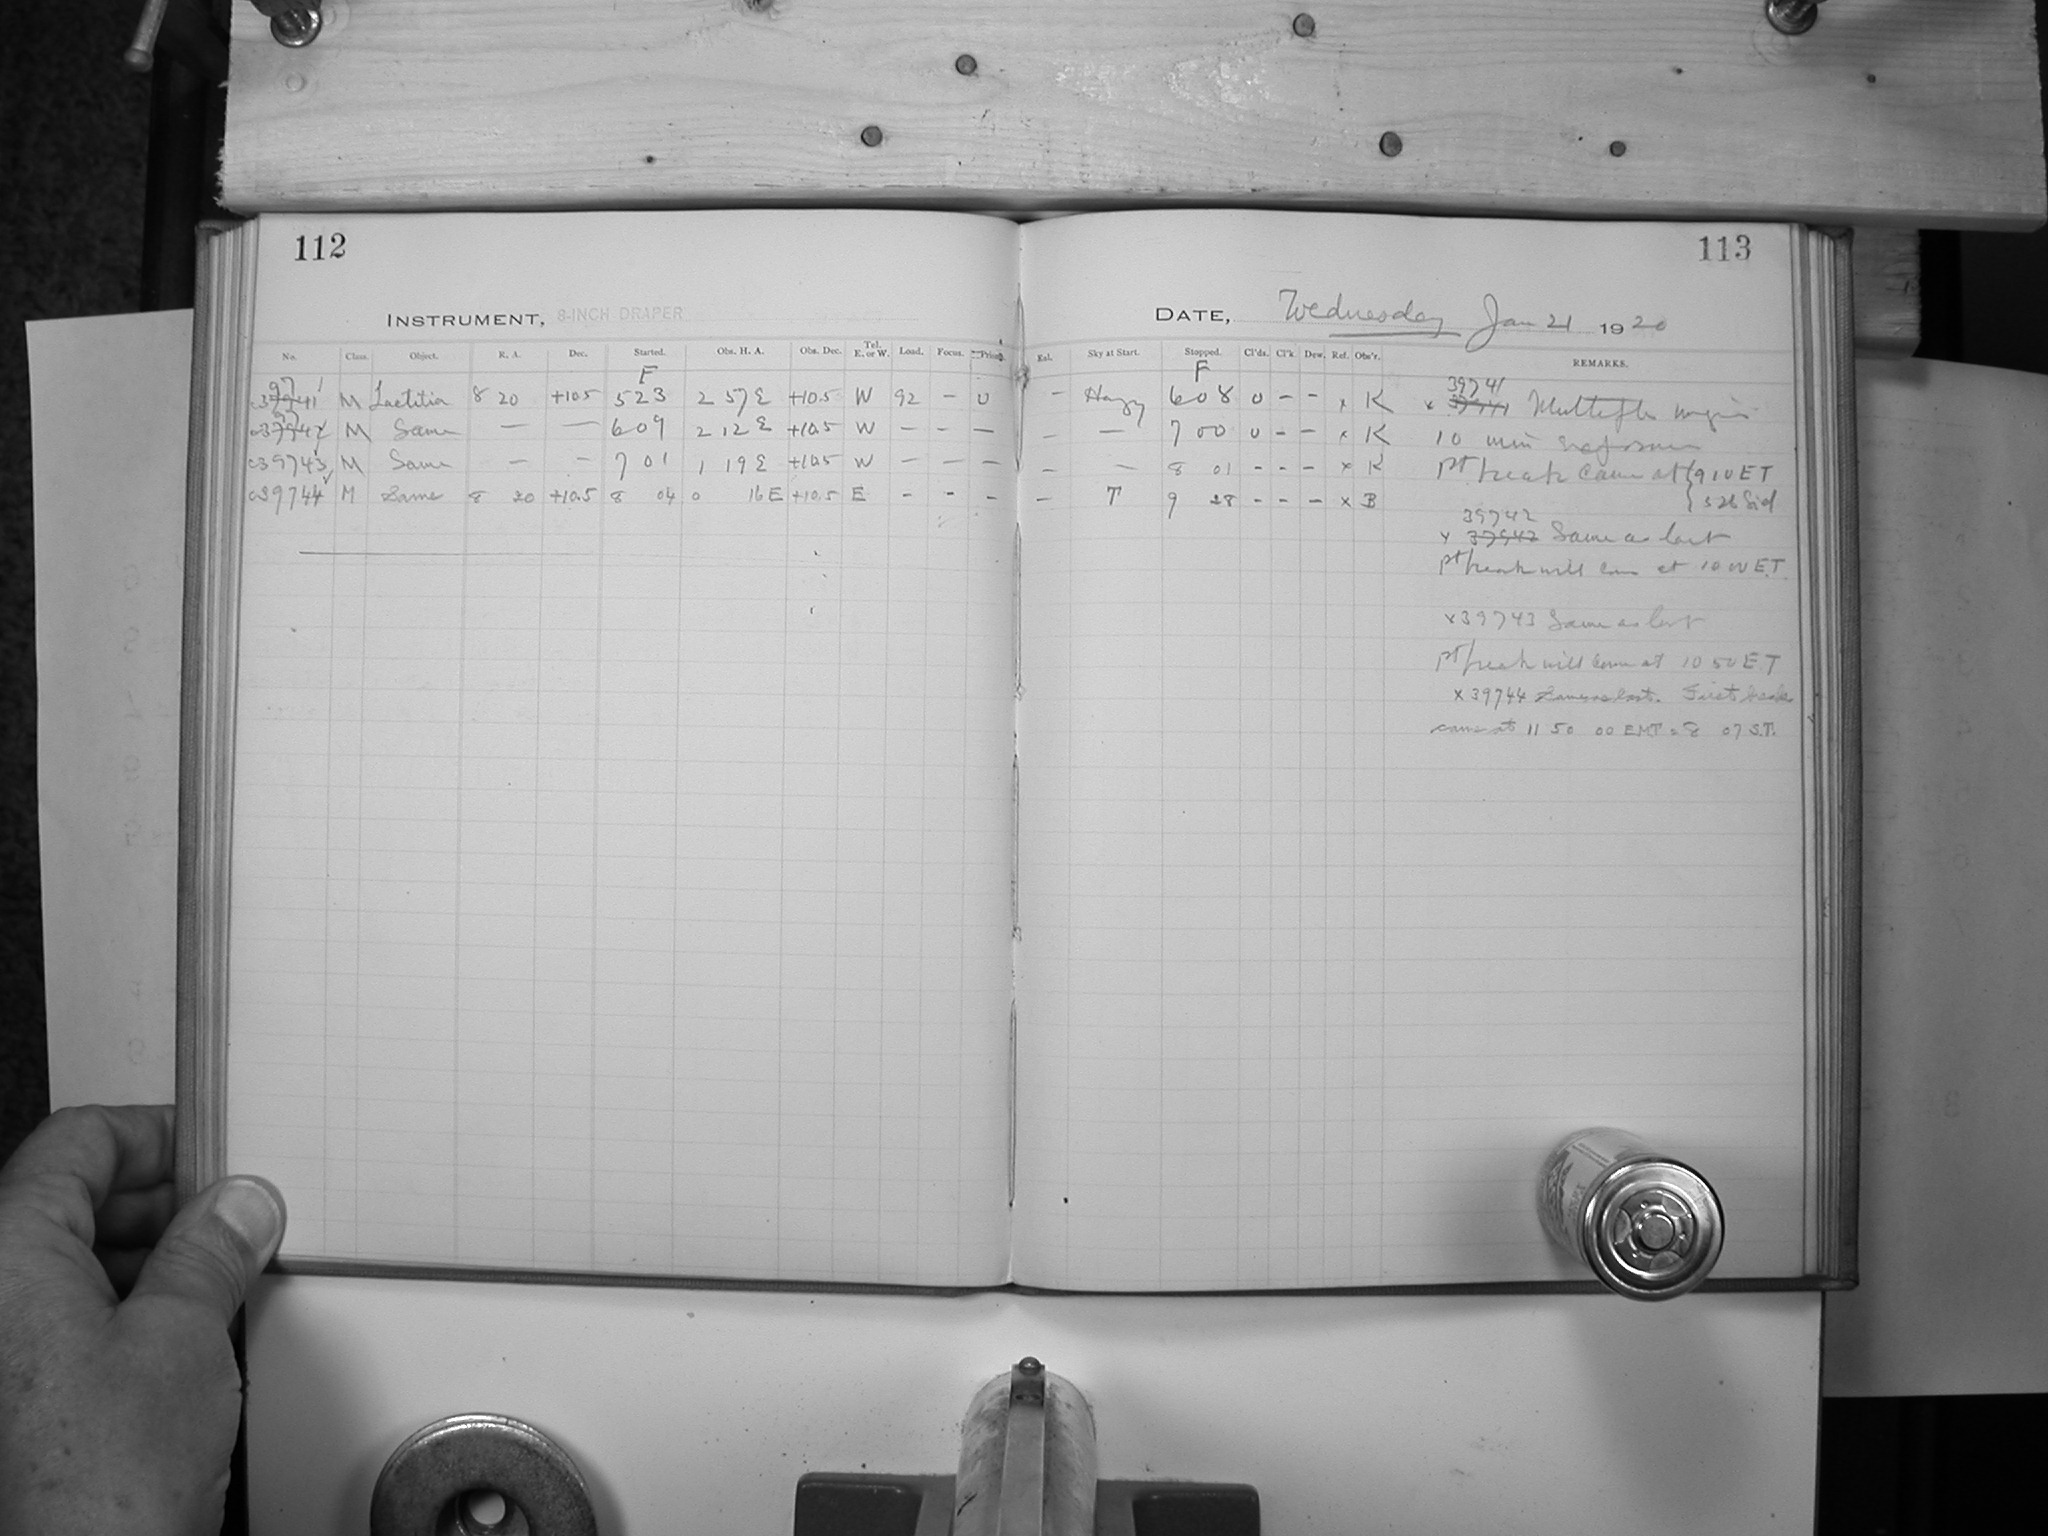 112
113
INSTRUMENT, 8-INCH DRAPER
DATE, Wednesday Jan 21 1920
No. Class. Object. R. A. Dec. Started. Obs. H. A. Obs. Dec. Tel. E. or W. Load. Focus. Prism.
Eal. Sky at Start. Stopped. Cl'ds. Cl'k. Dew. Ref. Obs'r. REMARKS.
F
F
c39741 M Laetitia 8 20 +10.5 5 23 2 57 E +10.5 W 92 – 0
– Hazy 6 08 0 – – x K
c39742 M Same — — 6 09 2 12 E +10.5 W – – –
– — 7 00 0 – – x K
c39743 M Same – – 7 01 1 19 E +10.5 W – – –
– – 8 01 – – – x K
c39744 M Same 8 20 +10.5 8 04 0 16 E +10.5 E – – –
– T 9 28 – – – x B
x 39741 Multiple
10 min exposures
Pt break came at 9 10 ET
5 26 Sid
39742
x Same as last
Pt break will come at 10 00 E.T.
x 39743 Same as last
Pt break will come at 10 50 E.T
x 39744 Same as last. First break
came at 11 50 00 EMT = 8 07 S.T.